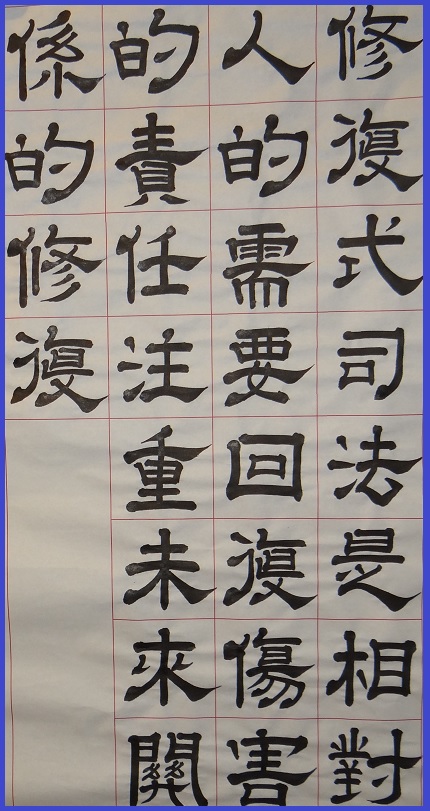 修復式司法是相對
人的需要回復傷害
的責任注重未來關
係的修復